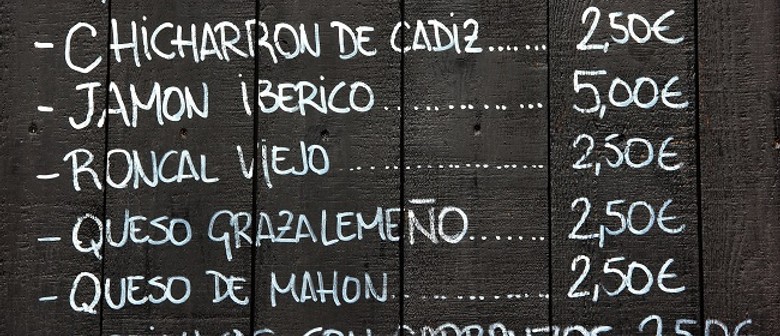 - CHICHARRON DE CADIZ....... 2,50€
- JAMON IBERICO............. 5,00€
- RONCAL VIEJO.................... 2,50€
- QUESO GRAZALEMEÑO....... 2,50€
- QUESO DE MAHON............... 2,50€
CON 2,50€